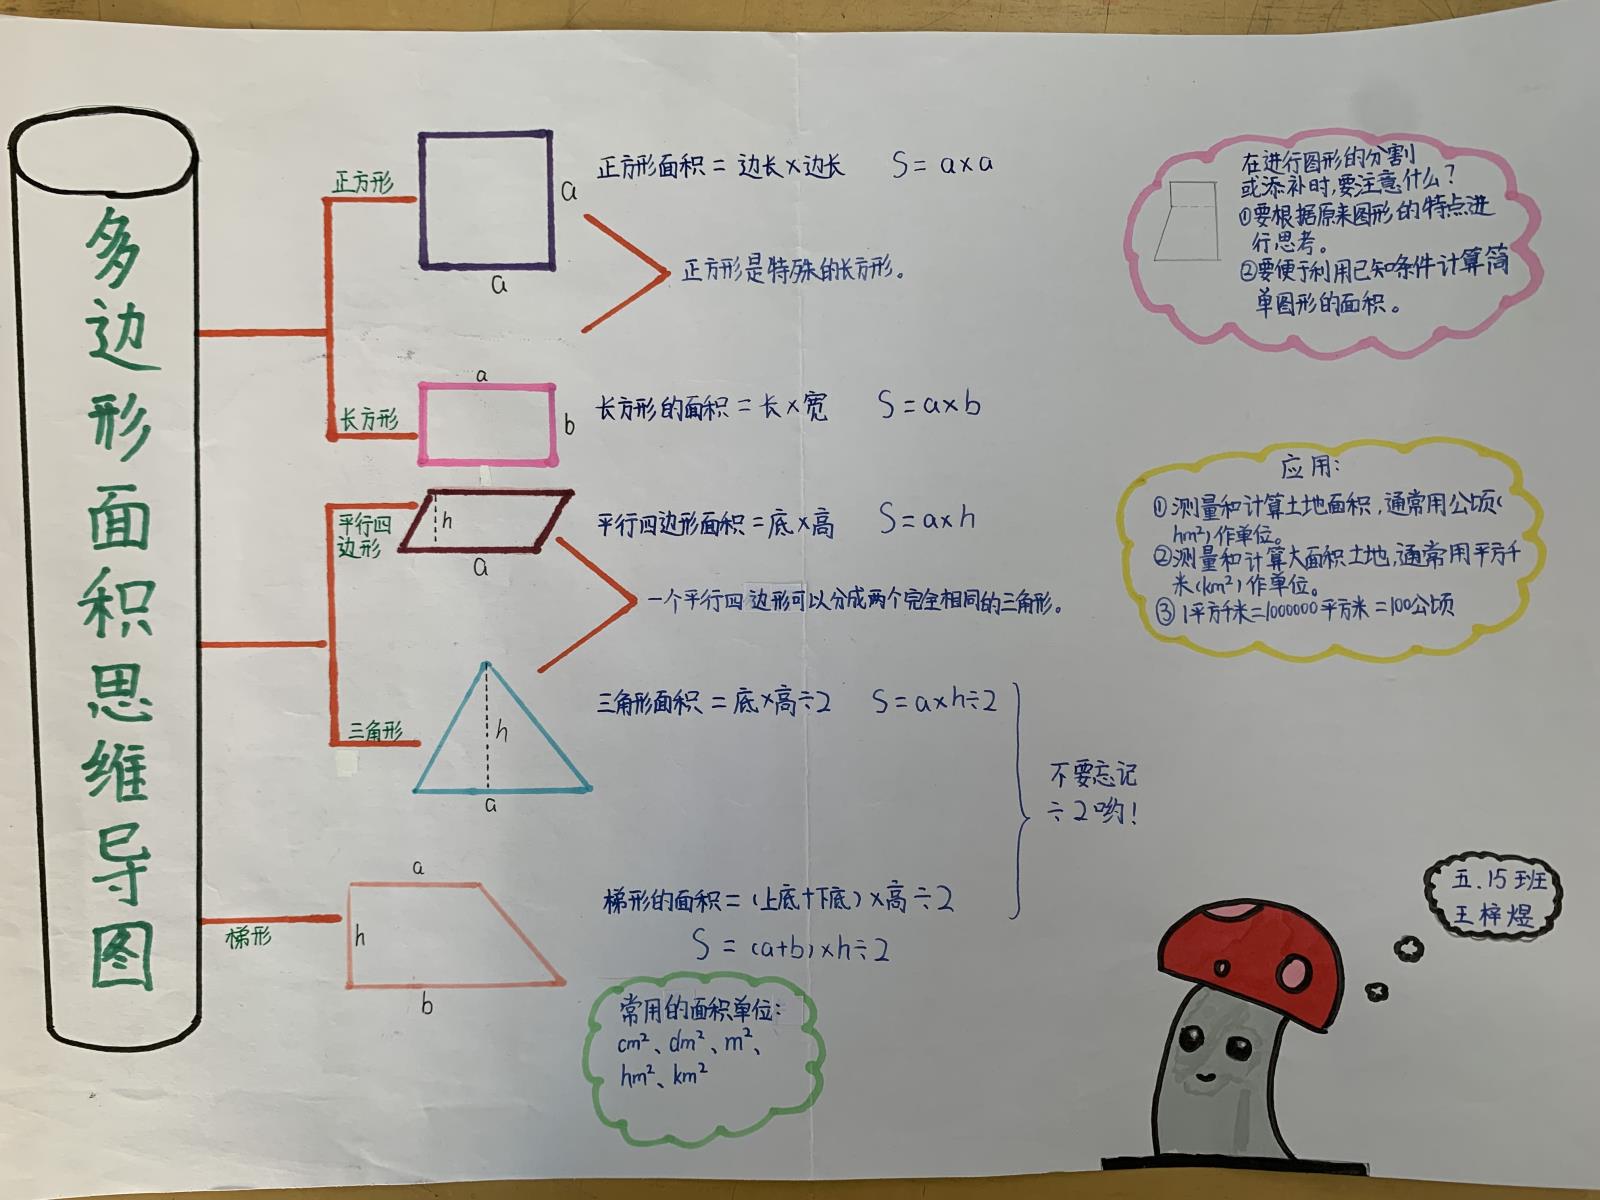 多边形面积思维导图
正方形
a
a
正方形面积=边长×边长 S=a×a
正方形是特殊的长方形。
长方形
a
b
长方形的面积=长×宽 S=a×b
平行四
边形
h
a
平行四边形面积=底×高 S=a×h
一个平行四边形可以分成两个完全相同的三角形。
三角形
h
a
三角形面积=底×高÷2 S=a×h÷2
不要忘记
÷2哟!
梯形
a
h
b
梯形的面积=(上底+下底)×高÷2
S=(a+b)×h÷2
常用的面积单位:
cm²、dm²、m²、
hm²、km²
在进行图形的分割
或添补时,要注意什么?
①要根据原来图形的特点进
行思考。
②要便于利用已知条件计算简
单图形的面积。
应用:
①测量和计算土地面积,通常用公顷(
hm²)作单位。
②测量和计算大面积土地,通常用平方千
米(km²)作单位。
③1平方千米=1000000平方米=100公顷
五.15班
王梓煜